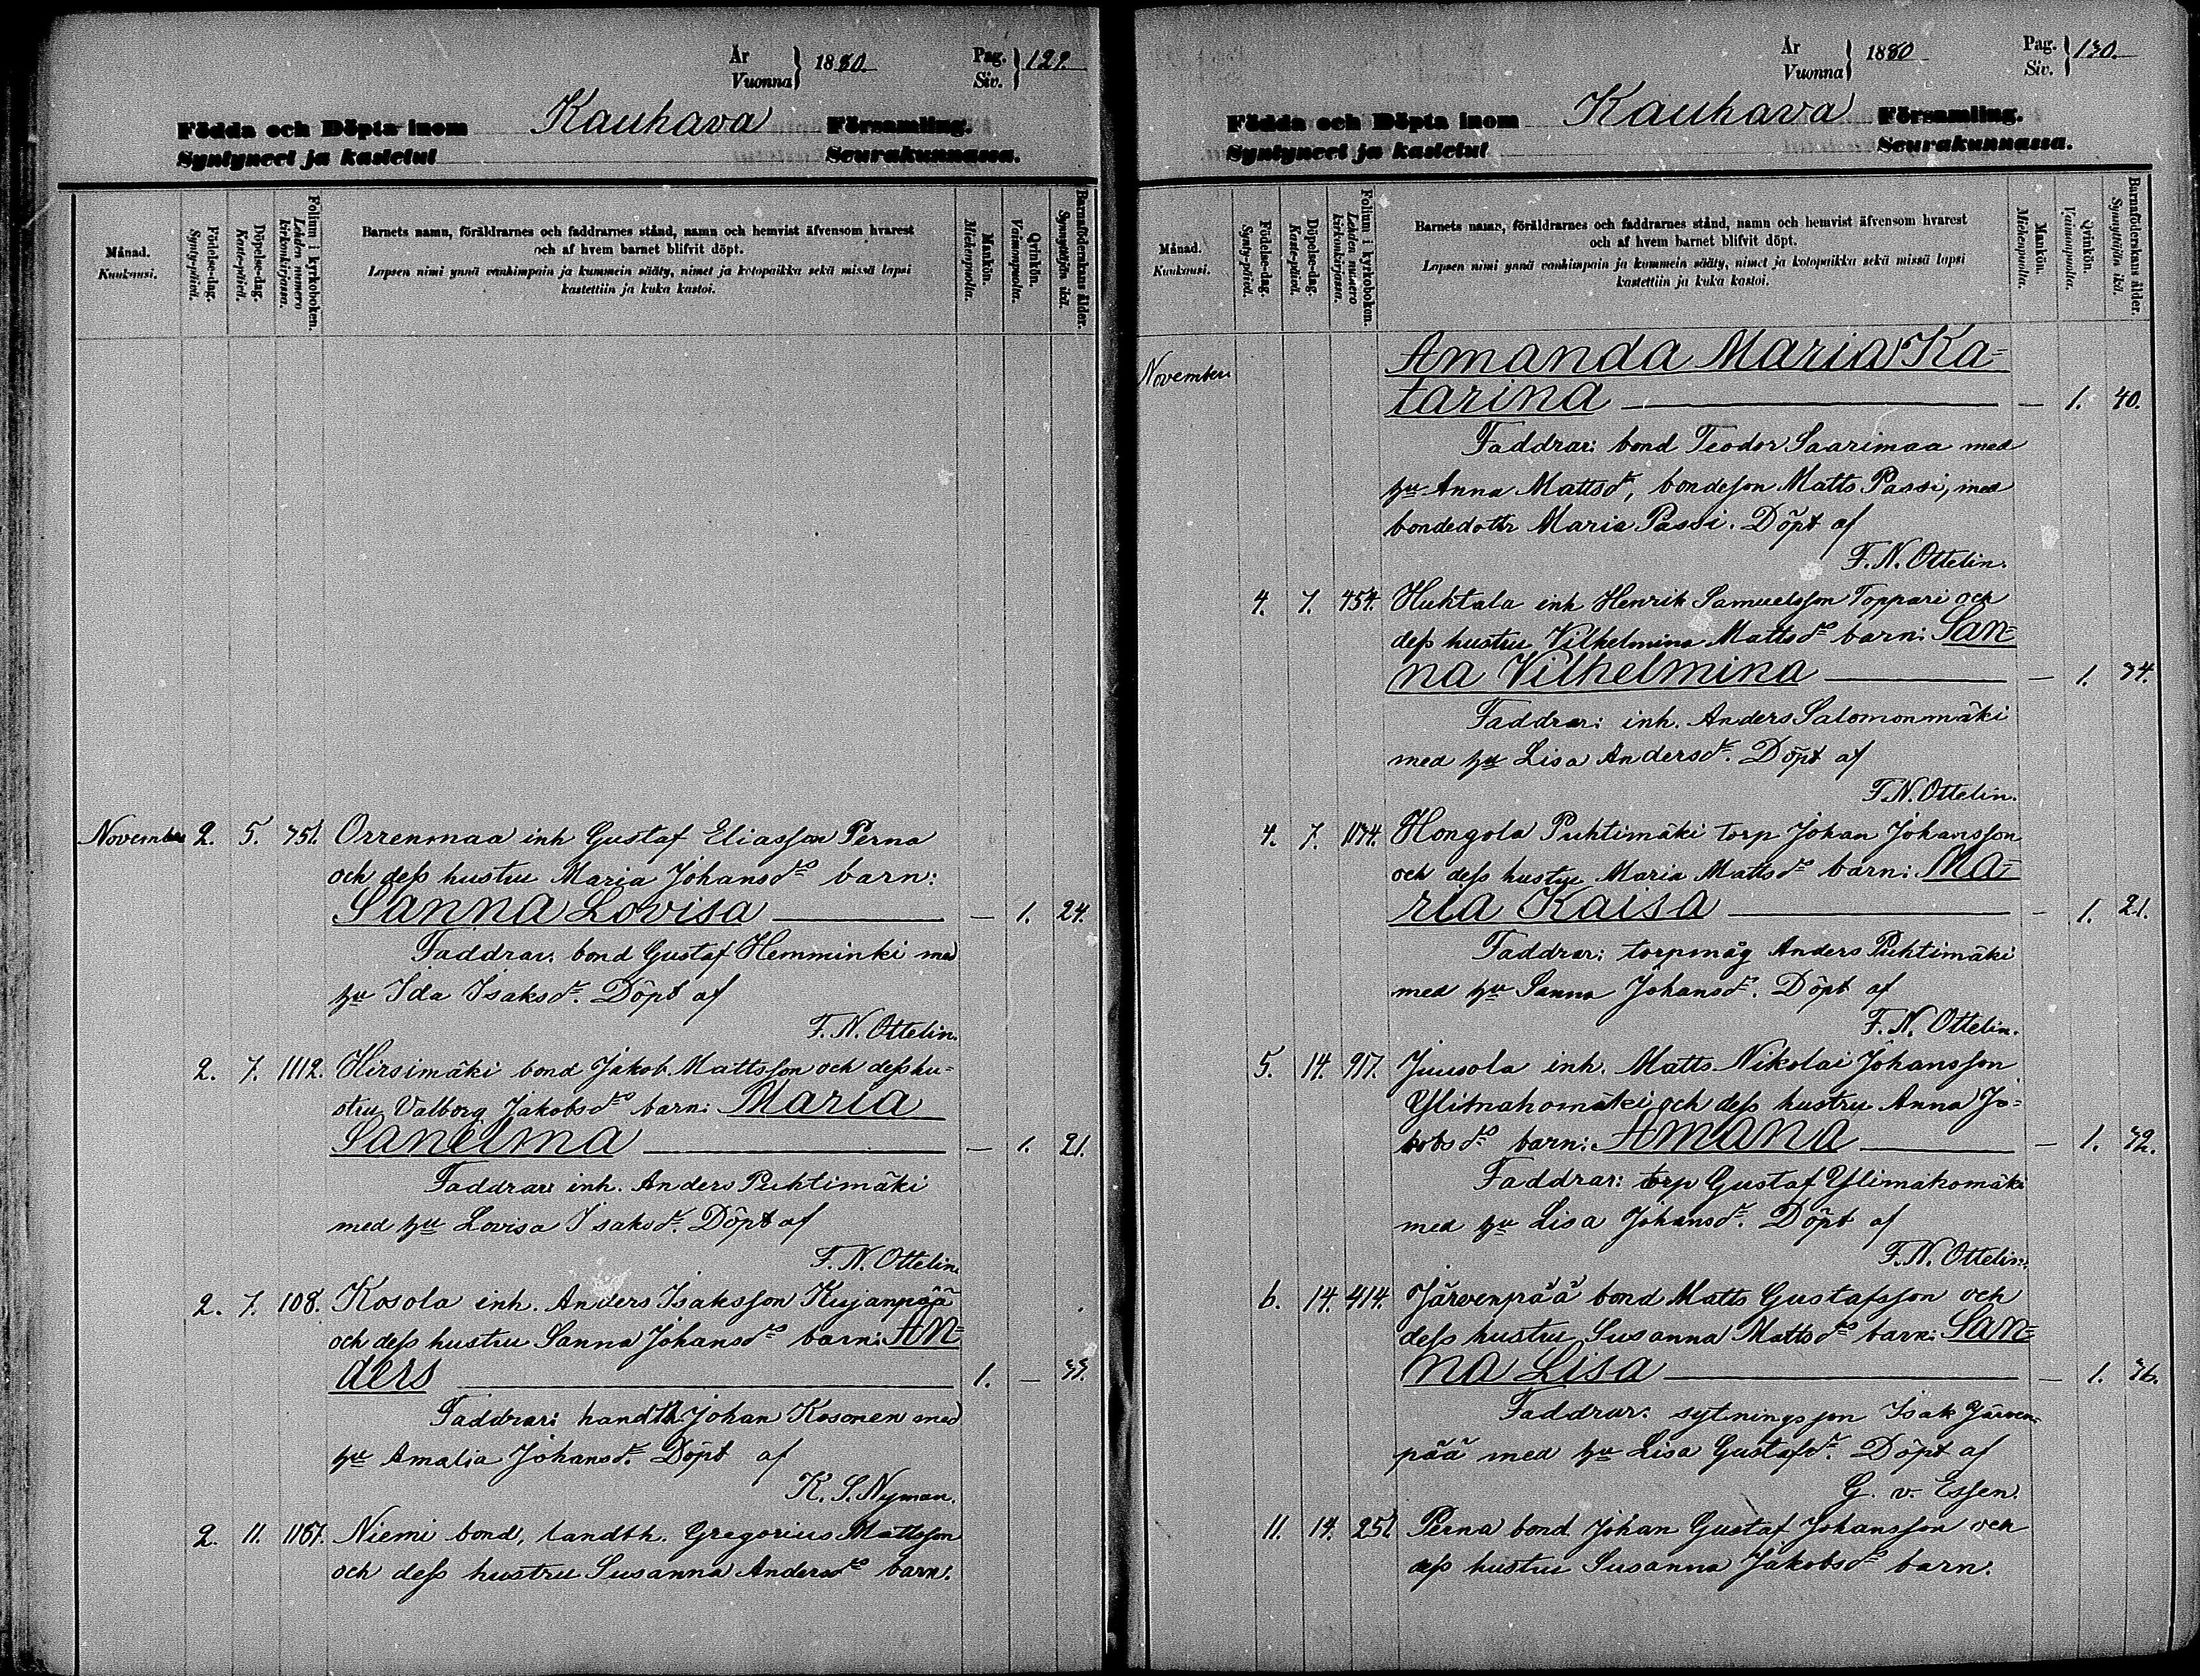 År
Vuonna } 1880.
Pag.
Siv. } 129.
Födda och Döpta inom Kauhava Församling.
Syntyneet ja kastetut Seurakunnassa.
Månad.
Kuukausi.
Födelse-dag.
Synty-päivä.
Döpelse-dag.
Kaste-päivä.
Folium i kyrkoboken.
Lehden numero kirkonkirjassa.
Barnets namn, föräldrarnes och faddrarnes stånd, namn och hemvist äfvensom hvarest
och af hvem barnet blifvit döpt.
Lapsen nimi ynnä vanhimpain ja kummein sääty, nimet ja kotopaikka sekä missä lapsi
kastettiin ja kuka kastoi.
Mankön.
Miehenpuolia.
Qvinkön.
Vaimonpuolia.
Barnaföderskans ålder.
Synnyttäjän ikä.
November 2. 5. 751. Orrenmaa inh Gustaf Eliasson Perna
och dess hustru Maria Johansdrs barn:
Sanna Lovisa — 1. 24.
Faddrar: bond Gustaf Hemminki med
hu Ida Isaksdr. Döpt af
F. N. Ottelin.
2. 7. 1112. Hirsimäki bond Jakob Mattsson och dess hu=
stru Valborg Jakobsdrs barn: Maria
Sanelma — 1. 21.
Faddrar: inh. Anders Puhtimäki
med hu Lovisa Isaksdr. Döpt af
F. N. Ottelin.
2. 7. 108. Kosola inh. Anders Isaksson Kujanpää
och dess hustru Sanna Johansdrs barn: An=
ders 1. — 33.
Faddrar: handth Johan Kosonen med
hu Amalia Johansdr. Döpt af
K. S. Nyman.
2. 11. 1167. Niemi bond, landth. Gregorius Mattsson
och dess hustru Susanna Andersdrs barn:
År
Vuonna } 1880
Pag.
Siv. } 130.
Födda och Döpta inom Kauhava Församling.
Syntyneet ja kastetut Seurakunnassa.
Månad.
Kuukausi.
Födelse-dag.
Synty-päivä.
Döpelse-dag.
Kaste-päivä.
Folium i kyrkoboken.
Lehden numero kirkonkirjassa.
Barnets namn, föräldrarnes och faddrarnes stånd, namn och hemvist äfvensom hvarest
och af hvem barnet blifvit döpt.
Lapsen nimi ynnä vanhimpain ja kummein sääty, nimet ja kotopaikka sekä missä lapsi
kastettiin ja kuka kastoi.
Mankön.
Miehenpuolia.
Qvinkön.
Vaimonpuolia.
Barnaföderskans ålder.
Synnyttäjän ikä.
November. Amanda Maria Ka=
tarina — 1. 40.
Faddrar: bond Teodor Saarimaa med
hu Anna Mattsdr, bondeson Matts Passi, med
bondedottr Maria Passi. Döpt af
F. N. Ottelin.
4. 7. 454. Huhtala inh Henrik Samuelsson Toppari och
dess hustru Vilhelmina Mattsdrs barn: San=
na Vilhelmina — 1. 34.
Faddrar: inh. Anders Salomonmäki
med hu Lisa Andersdr. Döpt af
F. N. Ottelin.
4. 7. 1174. Hongola Puhtimäki torp Johan Johansson
och dess hustru Maria Mattsdrs barn: Ma=
ria Kaisa — 1. 21.
Faddrar: torpmåg Anders Puhtimäki
med hu Sanna Johansdr. Döpt af
F. N. Ottelin.
5. 14. 917. Juusola inh. Matts Nikolai Johansson
Ylimahomäki och dess hustru Anna Ja=
kobsdrs barn: Amana — 1. 32.
Faddrar: torp Gustaf Ylimahomäki
med hu Lisa Johansdr. Döpt af
F. N. Ottelin.
6. 14. 414. Järvenpää bond Matts Gustafsson och
dess hustru Susanna Mattsdrs barn: San=
na Lisa — 1. 36.
Faddrar: sytningsson Isak Järven=
pää med hu Lisa Gustafsdr. Döpt af
G. v. Essen.
11. 14. 251. Perna bond Johan Gustaf Johansson och
dess hustru Susanna Jakobsdrs barn: